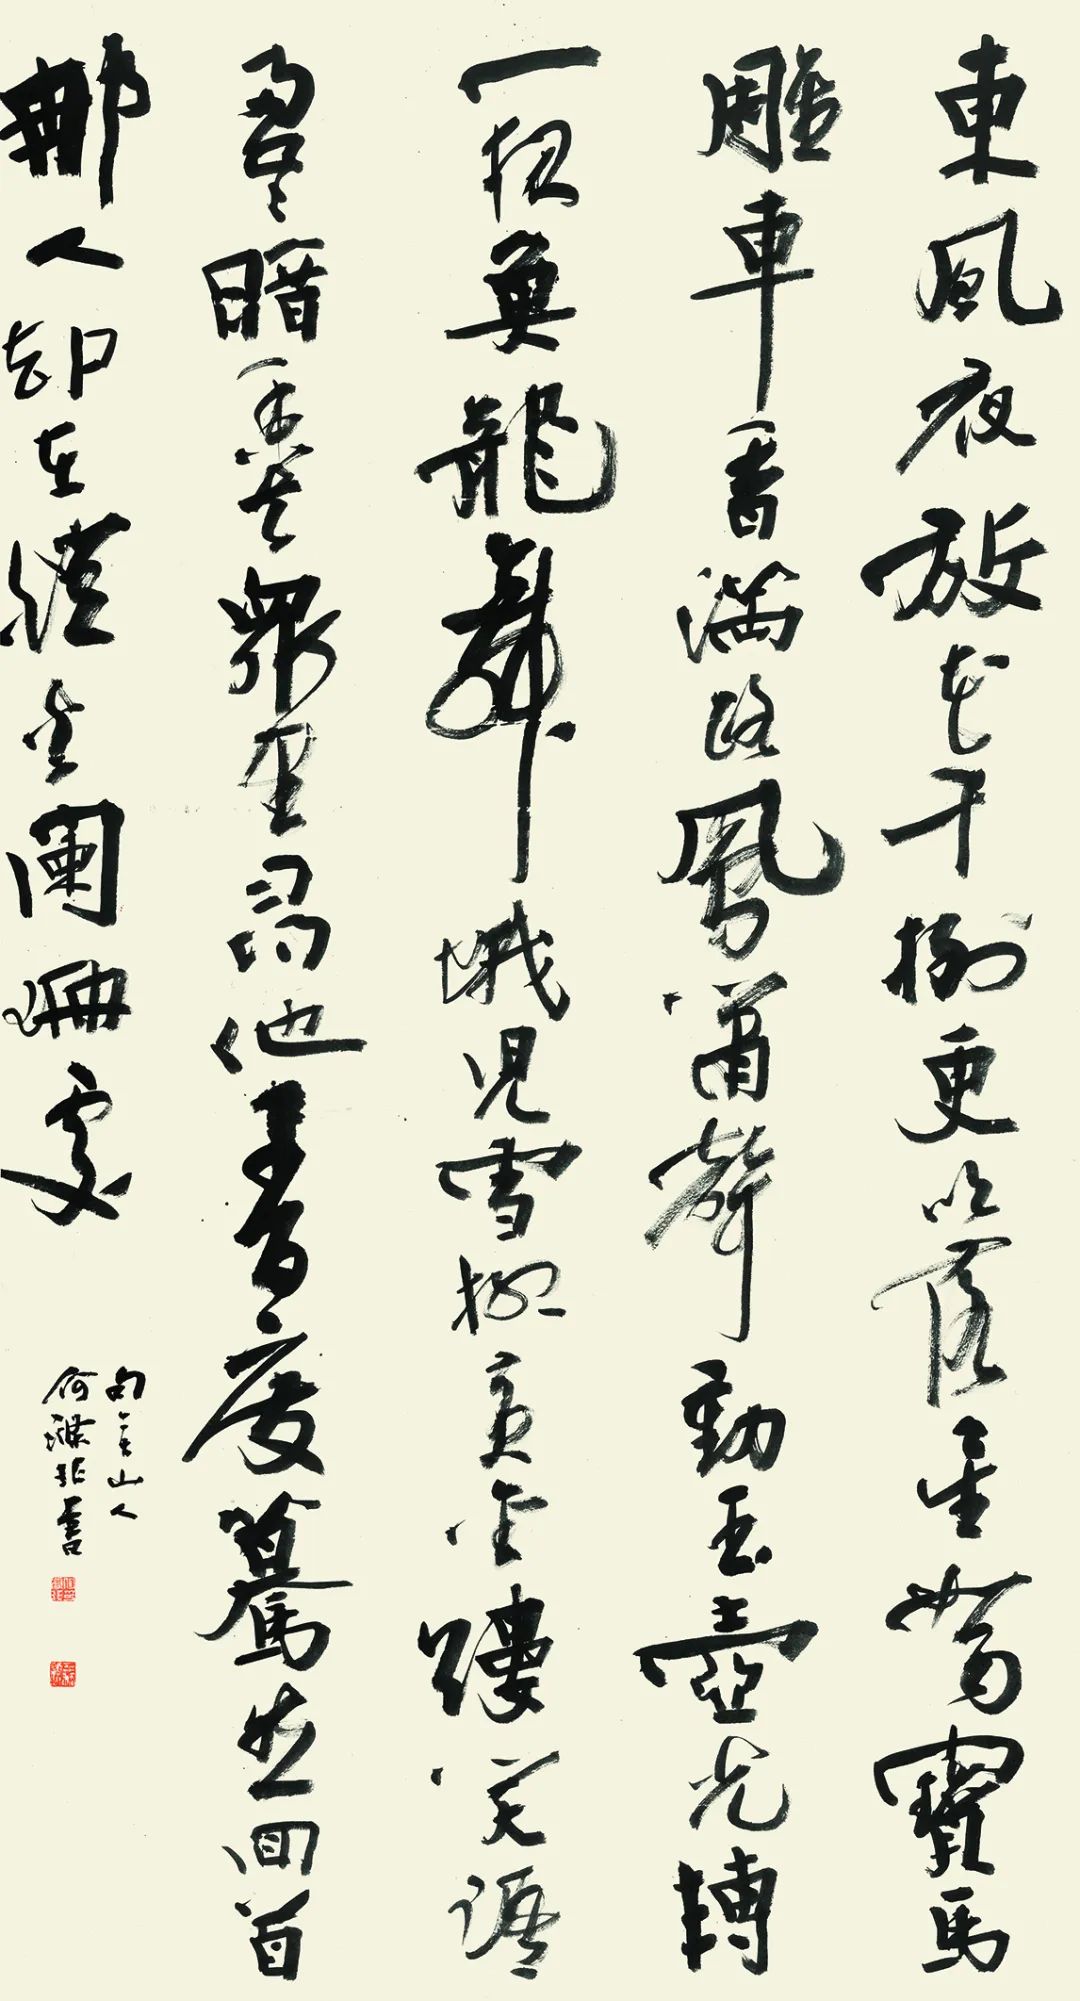 東風夜放花千樹更吹落星如雨寶馬
雕車香滿路鳳簫聲動玉壺光轉
一夜魚龍舞蛾兒雪柳黃金縷笑語
盈盈暗香去眾里尋他千百度驀然回首
那人却在燈火闌珊處
山人
何滌非書